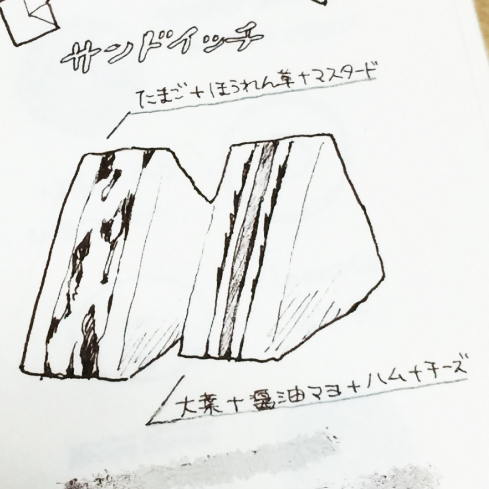 サンドイッチ
たまご+ほうれん草+マスタード
大葉+醤油マヨ+ハム+チーズ